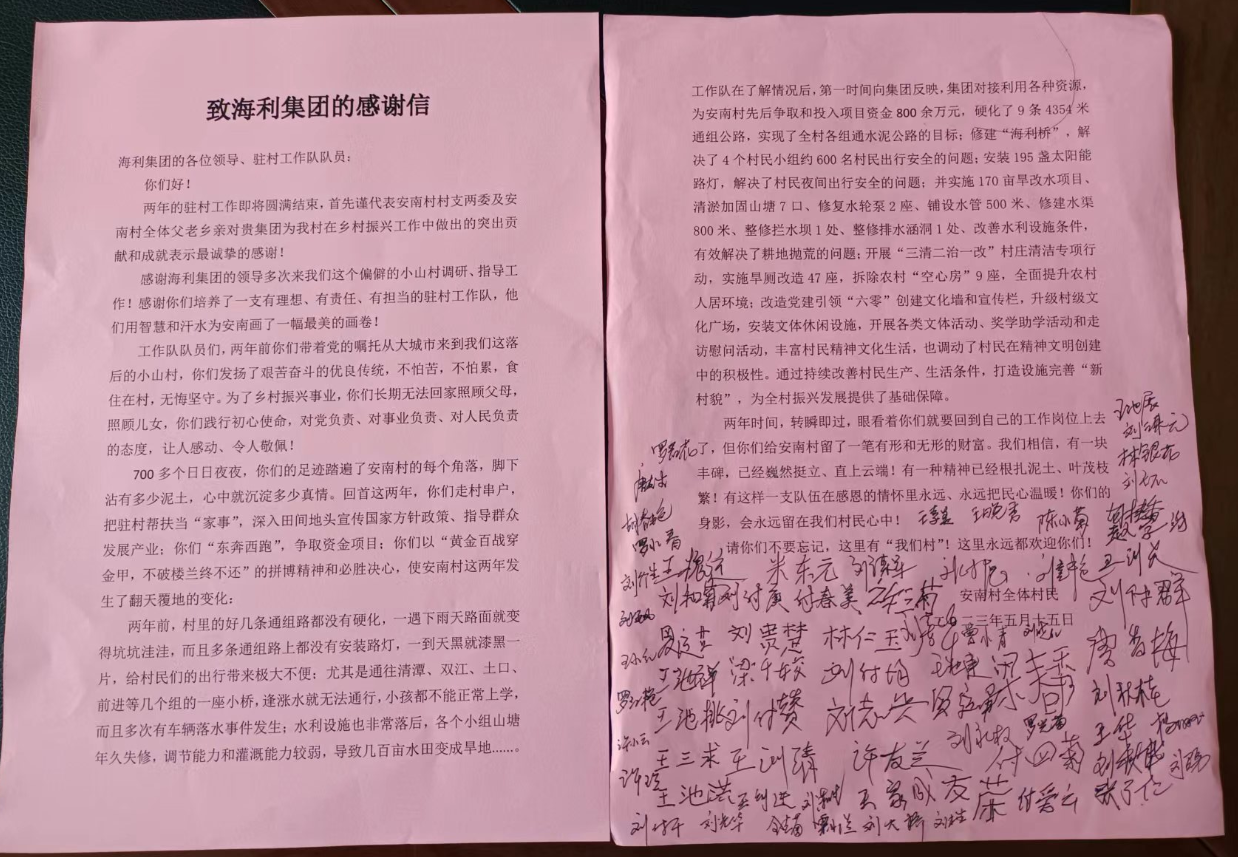 致海利集团的感谢信
海利集团的各位领导、驻村工作队队员：
你们好！
两年的驻村工作即将圆满结束，首先谨代表安南村村支两委及安
南村全体父老乡亲对贵集团为我村在乡村振兴工作中做出的突出贡
献和成就表示最诚挚的感谢！
感谢海利集团的领导多次来我们这个偏僻的小山村调研、指导工
作！感谢你们培养了一支有理想、有责任、有担当的驻村工作队，他
们用智慧和汗水为安南画了一幅最美的画卷！
工作队队员们，两年前你们带着党的嘱托从大城市来到我们这落
后的小山村，你们发扬了艰苦奋斗的优良传统，不怕苦，不怕累，食
住在村，无悔坚守。为了乡村振兴事业，你们长期无法回家照顾父母，
照顾儿女，你们践行初心使命，对党负责、对事业负责、对人民负责
的态度，让人感动、令人敬佩！
700 多个日日夜夜，你们的足迹踏遍了安南村的每个角落，脚下
沾有多少泥土，心中就沉淀多少真情。回首这两年，你们走村串户，
把驻村帮扶当“家事”，深入田间地头宣传国家方针政策、指导群众
发展产业；你们“东奔西跑”，争取资金项目；你们以“黄金百战穿
金甲，不破楼兰终不还”的拼搏精神和必胜决心，使安南村这两年发
生了翻天覆地的变化：
两年前，村里的好几条通组路都没有硬化，一遇下雨天路面就变
得坑坑洼洼，而且多条通组路上都没有安装路灯，一到天黑就漆黑一
片，给村民们的出行带来极大不便；尤其是通往清潭、双江、土口、
前进等几个组的一座小桥，逢涨水就无法通行，小孩都不能正常上学，
而且多次有车辆落水事件发生；水利设施也非常落后，各个小组山塘
年久失修，调节能力和灌溉能力较弱，导致几百亩水田变成旱地……。
工作队在了解情况后，第一时间向集团反映，集团对接利用各种资源，
为安南村先后争取和投入项目资金 800 余万元，硬化了 9 条 4354 米
通组公路，实现了全村各组通水泥公路的目标；修建“海利桥”，解
决了 4 个村民小组约 600 名村民出行安全的问题；安装 195 盏太阳能
路灯，解决了村民夜间出行安全的问题；并实施 170 亩旱改水项目、
清淤加固山塘 7 口、修复水轮泵 2 座、铺设水管 500 米、修建水渠
800 米、整修拦水坝 1 处、整修排水涵洞 1 处、改善水利设施条件，
有效解决了耕地抛荒的问题；开展“三清二治一改”村庄清洁专项行
动，实施旱厕改造 47 座，拆除农村“空心房”9 座，全面提升农村
人居环境；改造党建引领“六零”创建文化墙和宣传栏，升级村级文
化广场，安装文体休闲设施，开展各类文体活动、奖学助学活动和走
访慰问活动，丰富村民精神文化生活，也调动了村民在精神文明创建
中的积极性。通过持续改善村民生产、生活条件，打造设施完善“新
村貌”，为全村振兴发展提供了基础保障。
两年时间，转瞬即过，眼看着你们就要回到自己的工作岗位上去
了，但你们给安南村留了一笔有形和无形的财富。我们相信，有一块
丰碑，已经巍然挺立、直上云端！有一种精神已经根扎泥土、叶茂枝
繁！有这样一支队伍在感恩的情怀里永远、永远把民心温暖！你们的
身影，会永远留在我们村民心中！
请你们不要忘记，这里有“我们村”！这里永远都欢迎你们！
米东元
安南村全体村民
刘和菊 刘付庚 付春美
二三年五月十五日
刘贵楚 林仁玉
唐春梅
王池桃 刘付赞
刘秋桂
王三求 王训清 许友兰 付四菊
王池洪 付爱云
刘光华 刘大桥